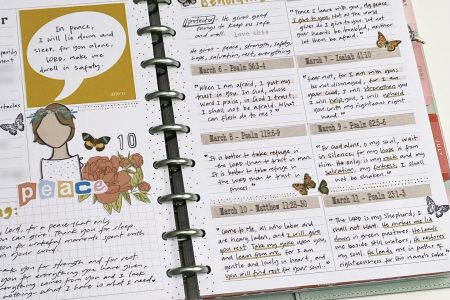 In peace,
I will lie down and
sleep, for you alone,
LORD, make me
dwell in safety.
10
peace
Lord, for a peace that only
you can give. Thank you for sleep
for wonderful moments spent with
your world.
Thank you for strength and for rest
everything you have given,
everything comes from you and I lack
nothing. What I have is what I needs
(protector) He gives good
things to keep us safe
love this
He gives - peace, strength, safety,
hope, salvation, rest, everything
"Peace I leave with you, my peace
I give it you. Not as the world
gives do I give to you. let not
your hearts be troubled, neither
let them be afraid."
March 6 - Psalm 56:3-4
"When I am afraid, I put my
trust in you. In God, whose
word I praise, in God I trust;
I shall not be afraid. What can
flesh do to me?"
March 7 - Isaiah 41:10
"fear not, for I am with you;
be not dismayed, for I am
your God; I will strengthen you
I will help you, I will uphold
you with my righteous right
hand."
March 8 - Psalm 118:8-9
"It is better to take refuge in
the LORD than to trust in man.
It is better to take refuge in
the LORD than to trust in
princes."
March 9 - Psalm 62:5-6
"For God alone, O my soul, wait
in silence, for my hope is from
him. He only is my rock and my
salvation, my fortress; I shall
not be shaken."
March 10 - Matthew 11:28-30
"Come to Me, all who labor and
are heavy laden, and I will give
you rest. Take my yoke upon you,
and learn from me, for I am
gentle and lowly in heart, and
you will find rest for your soul.
March 11 - Psalm 23:1-3
"The LORD is my shepherd, I
shall not want. He makes me lie
down in green pastures. He leads
me beside still waters. He restores
my soul. He leads me in paths of
righteousness for his name's sake.
JULY